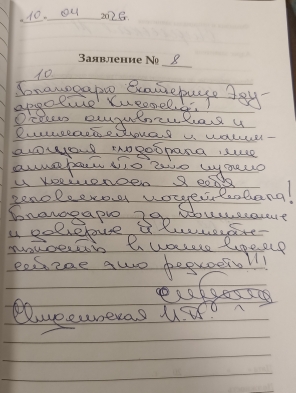 10. 04 2026.
Заявление № 8
10
Благодарю Екатерине Эду-
ардовне Киселевой!
Очень отзывчивая и
внимательная и пони-
мающая подобрала мне
аппарат что что нужно
и хотелось Я себя
человеком почувствовала!
Благодарю за понимание
и доверие и внимате-
льность в наше время
сейчас это редкость!!!